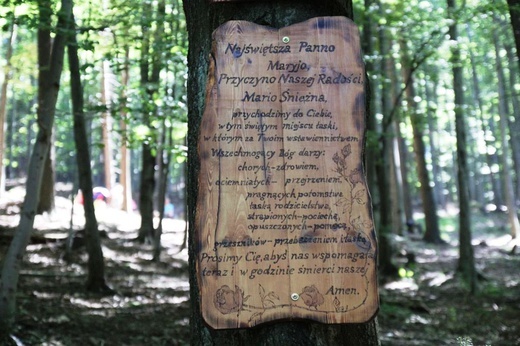 Najświętsza Panno
Maryjo,
Przyczyno Naszej Radości,
Mario Śnieżna,
przychodzimy do Ciebie,
w tym świętym miejscu łaski,
w którym za Twoim wstawiennictwem
Wszechmogący Bóg darzy:
chorych - zdrowiem,
ociemniałych - przejrzeniem,
pragnących potomstwa
łaską rodzicielstwa,
strapionych - pociechą,
opuszczonych - pomocą,
grzeszników - przebaczeniem
Prosimy Cię, abyś nas wspomagała
teraz i w godzinie śmierci naszej
Amen.